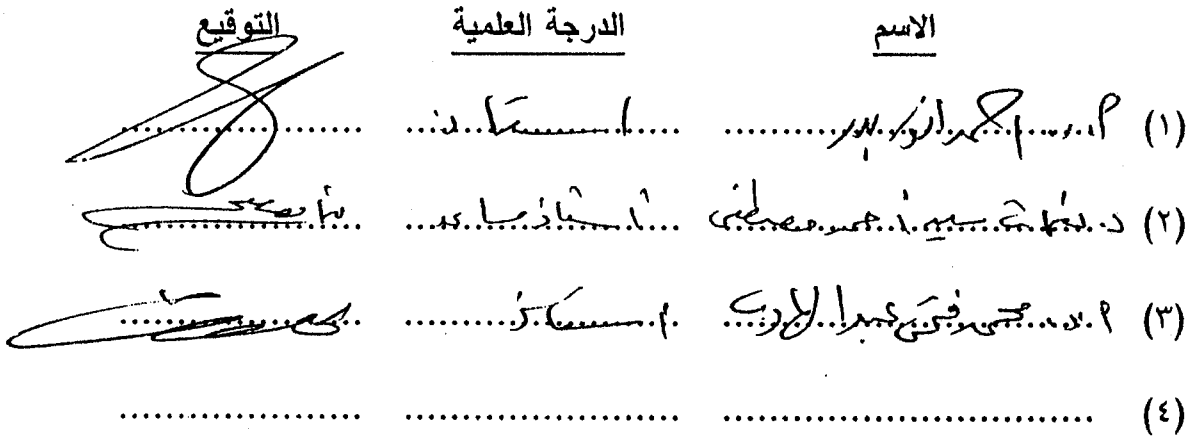 الاسم الدرجة العلمية التوقيع
(١) أ.د. أحمد أنور بدر استاذ
(٢) د. سيد أحمد مصطفى أستاذ مساعد
(٣) أ.د. فتحى عبد الهادى استاذ
(٤)